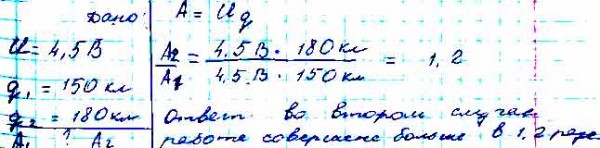 Дано:
U = 4,5 В
q1 = 150 кл
q2 = 180 кл
A1 ? A2
A = Uq
A2/A1 = 4,5 В · 180 кл / 4,5 В · 150 кл = 1,2
Ответ во втором случае
работа совершена больше в 1,2 раза